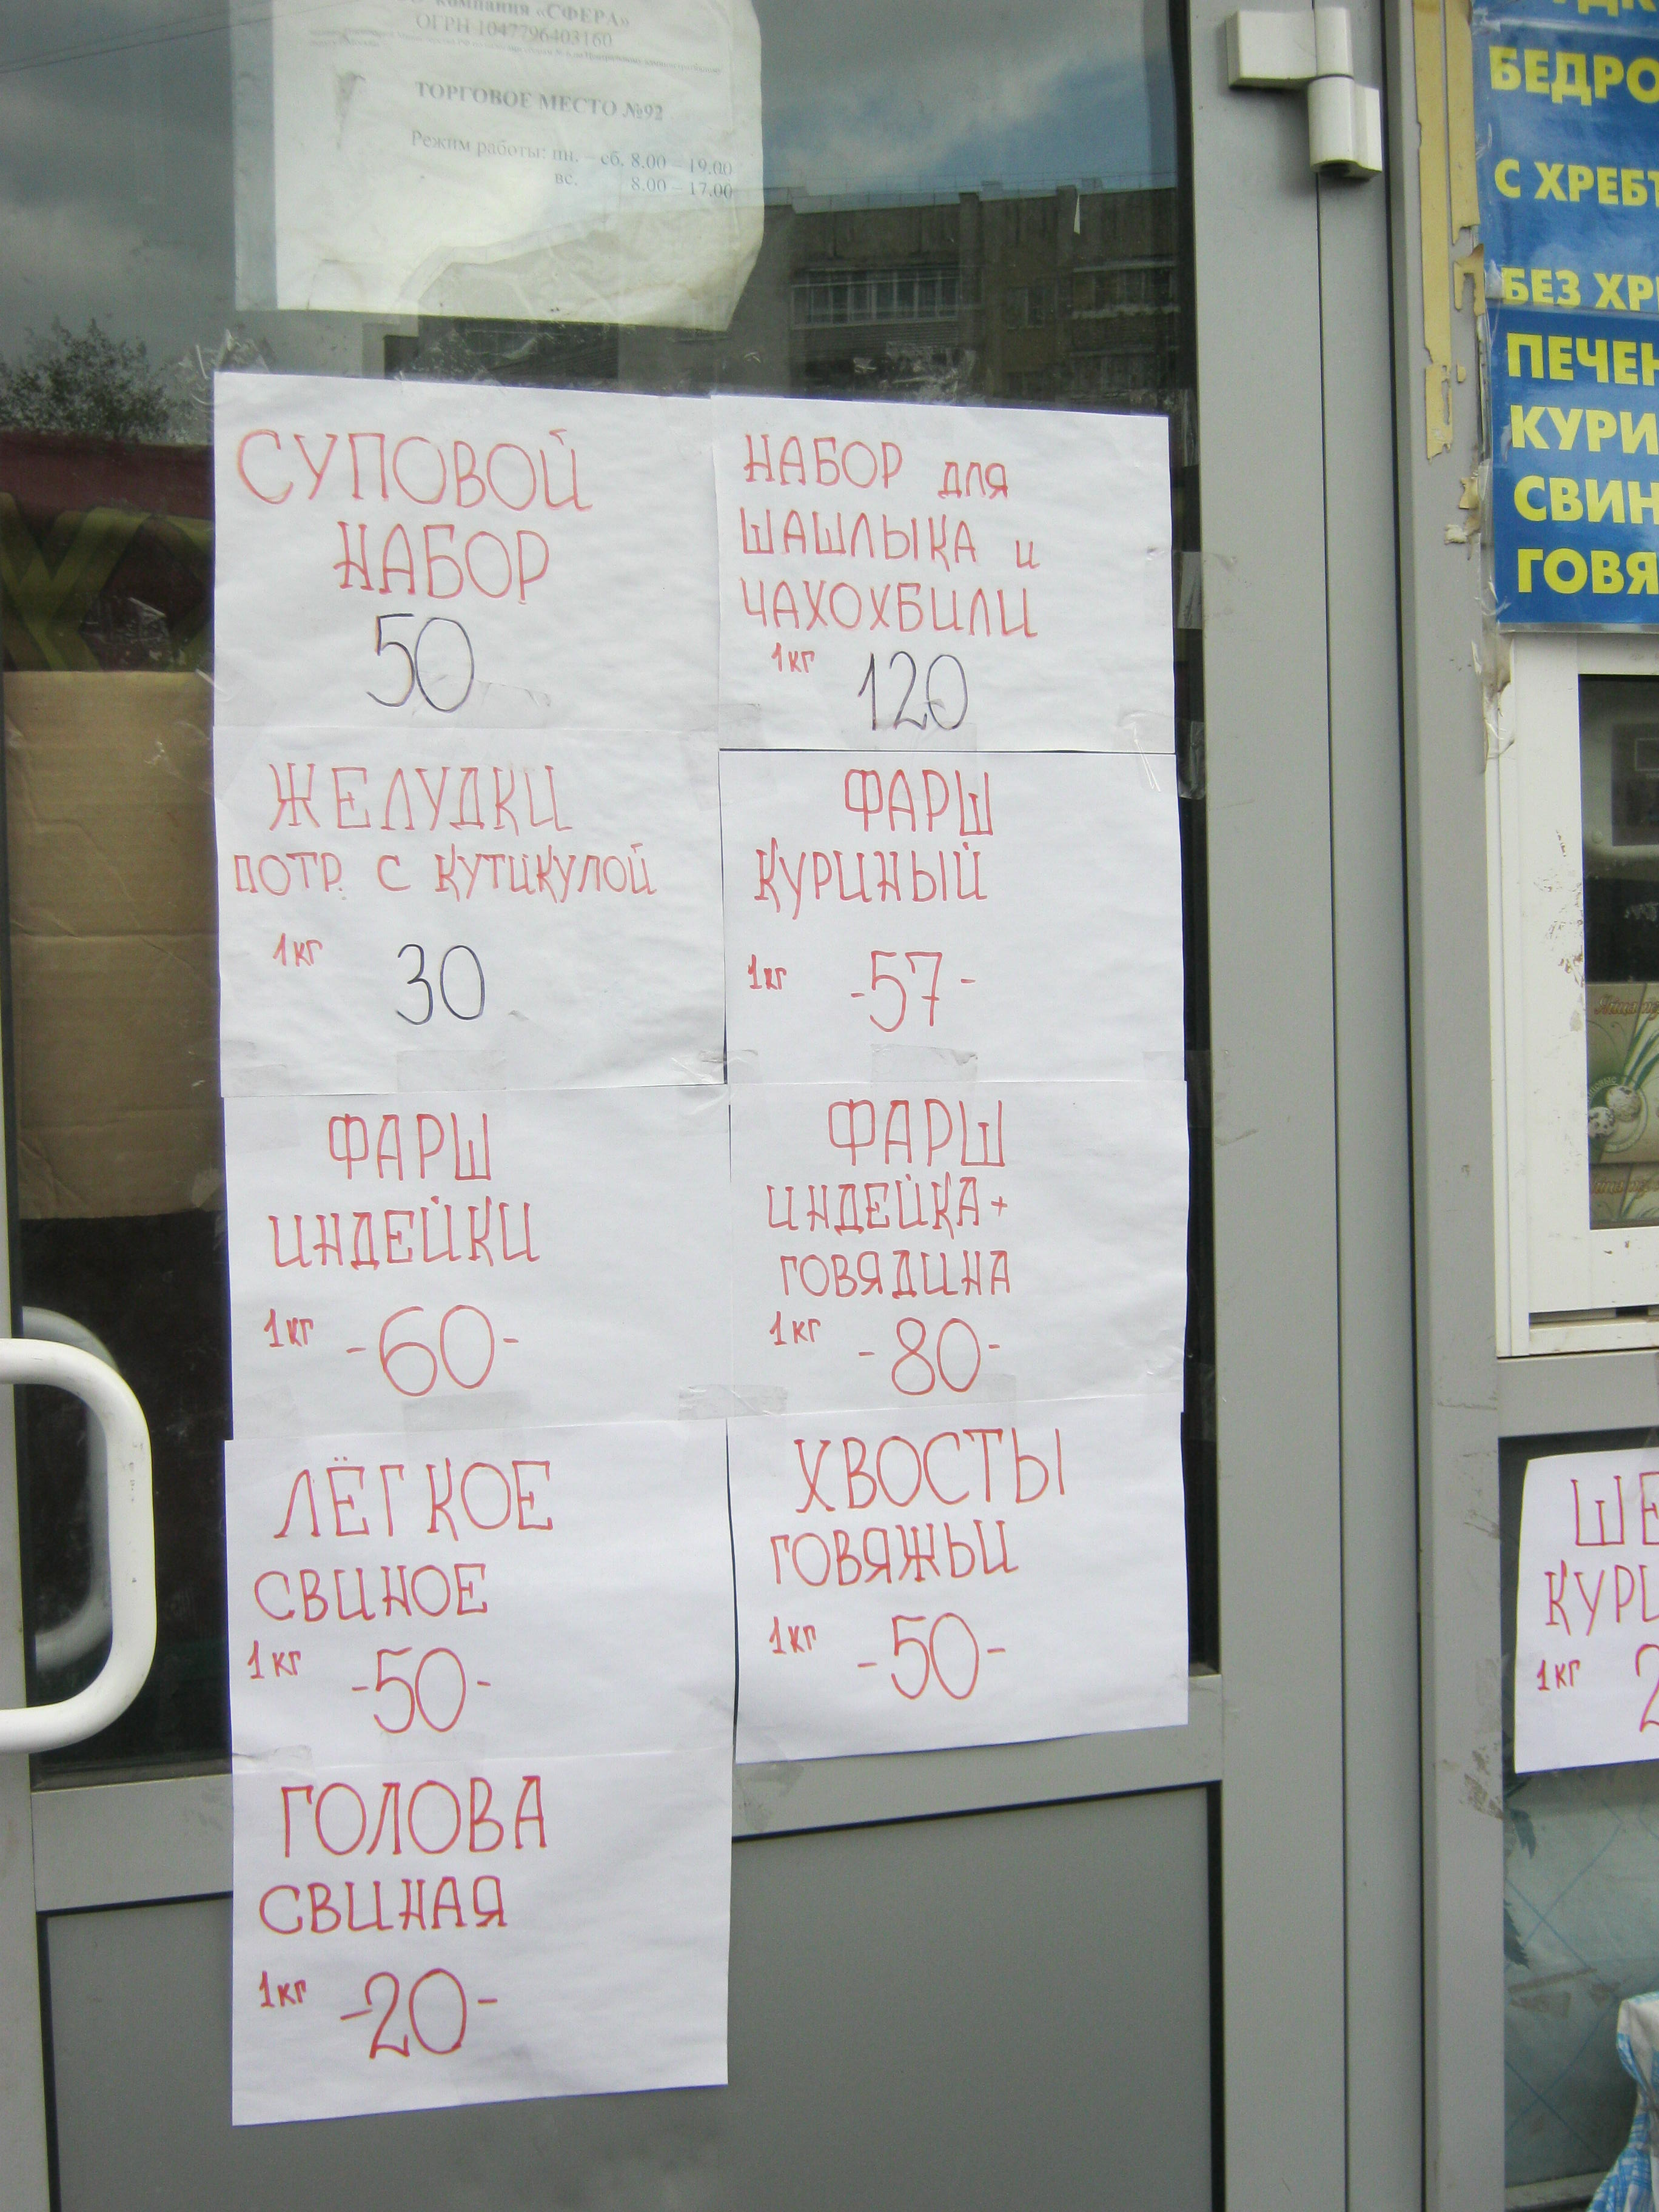 компания «СФЕРА»
ОГРН 1047796403160
ТОРГОВОЕ МЕСТО №92
Режим работы: пн. – сб. 8.00 – 19.00
вс. 8.00 – 17.00
СУПОВОЙ
НАБОР
50
НАБОР для
ШАШЛЫКА и
ЧАХОХБИЛИ
1кг 120
ЖЕЛУДКИ
ПОТР. С КУТИКУЛОЙ
1кг 30
ФАРШ
КУРИНЫЙ
1кг -57-
ФАРШ
ИНДЕЙКИ
1кг -60-
ФАРШ
ИНДЕЙКА+
ГОВЯДИНА
1кг -80-
ЛЁГКОЕ
СВИНОЕ
1кг -50-
ХВОСТЫ
ГОВЯЖЬИ
1кг -50-
ГОЛОВА
СВИНАЯ
1кг -20-
БЕДРО
С ХРЕБТ
БЕЗ ХР
ПЕЧЕН
КУРИ
СВИН
ГОВЯ
ШЕ
КУРИ
1кг 2